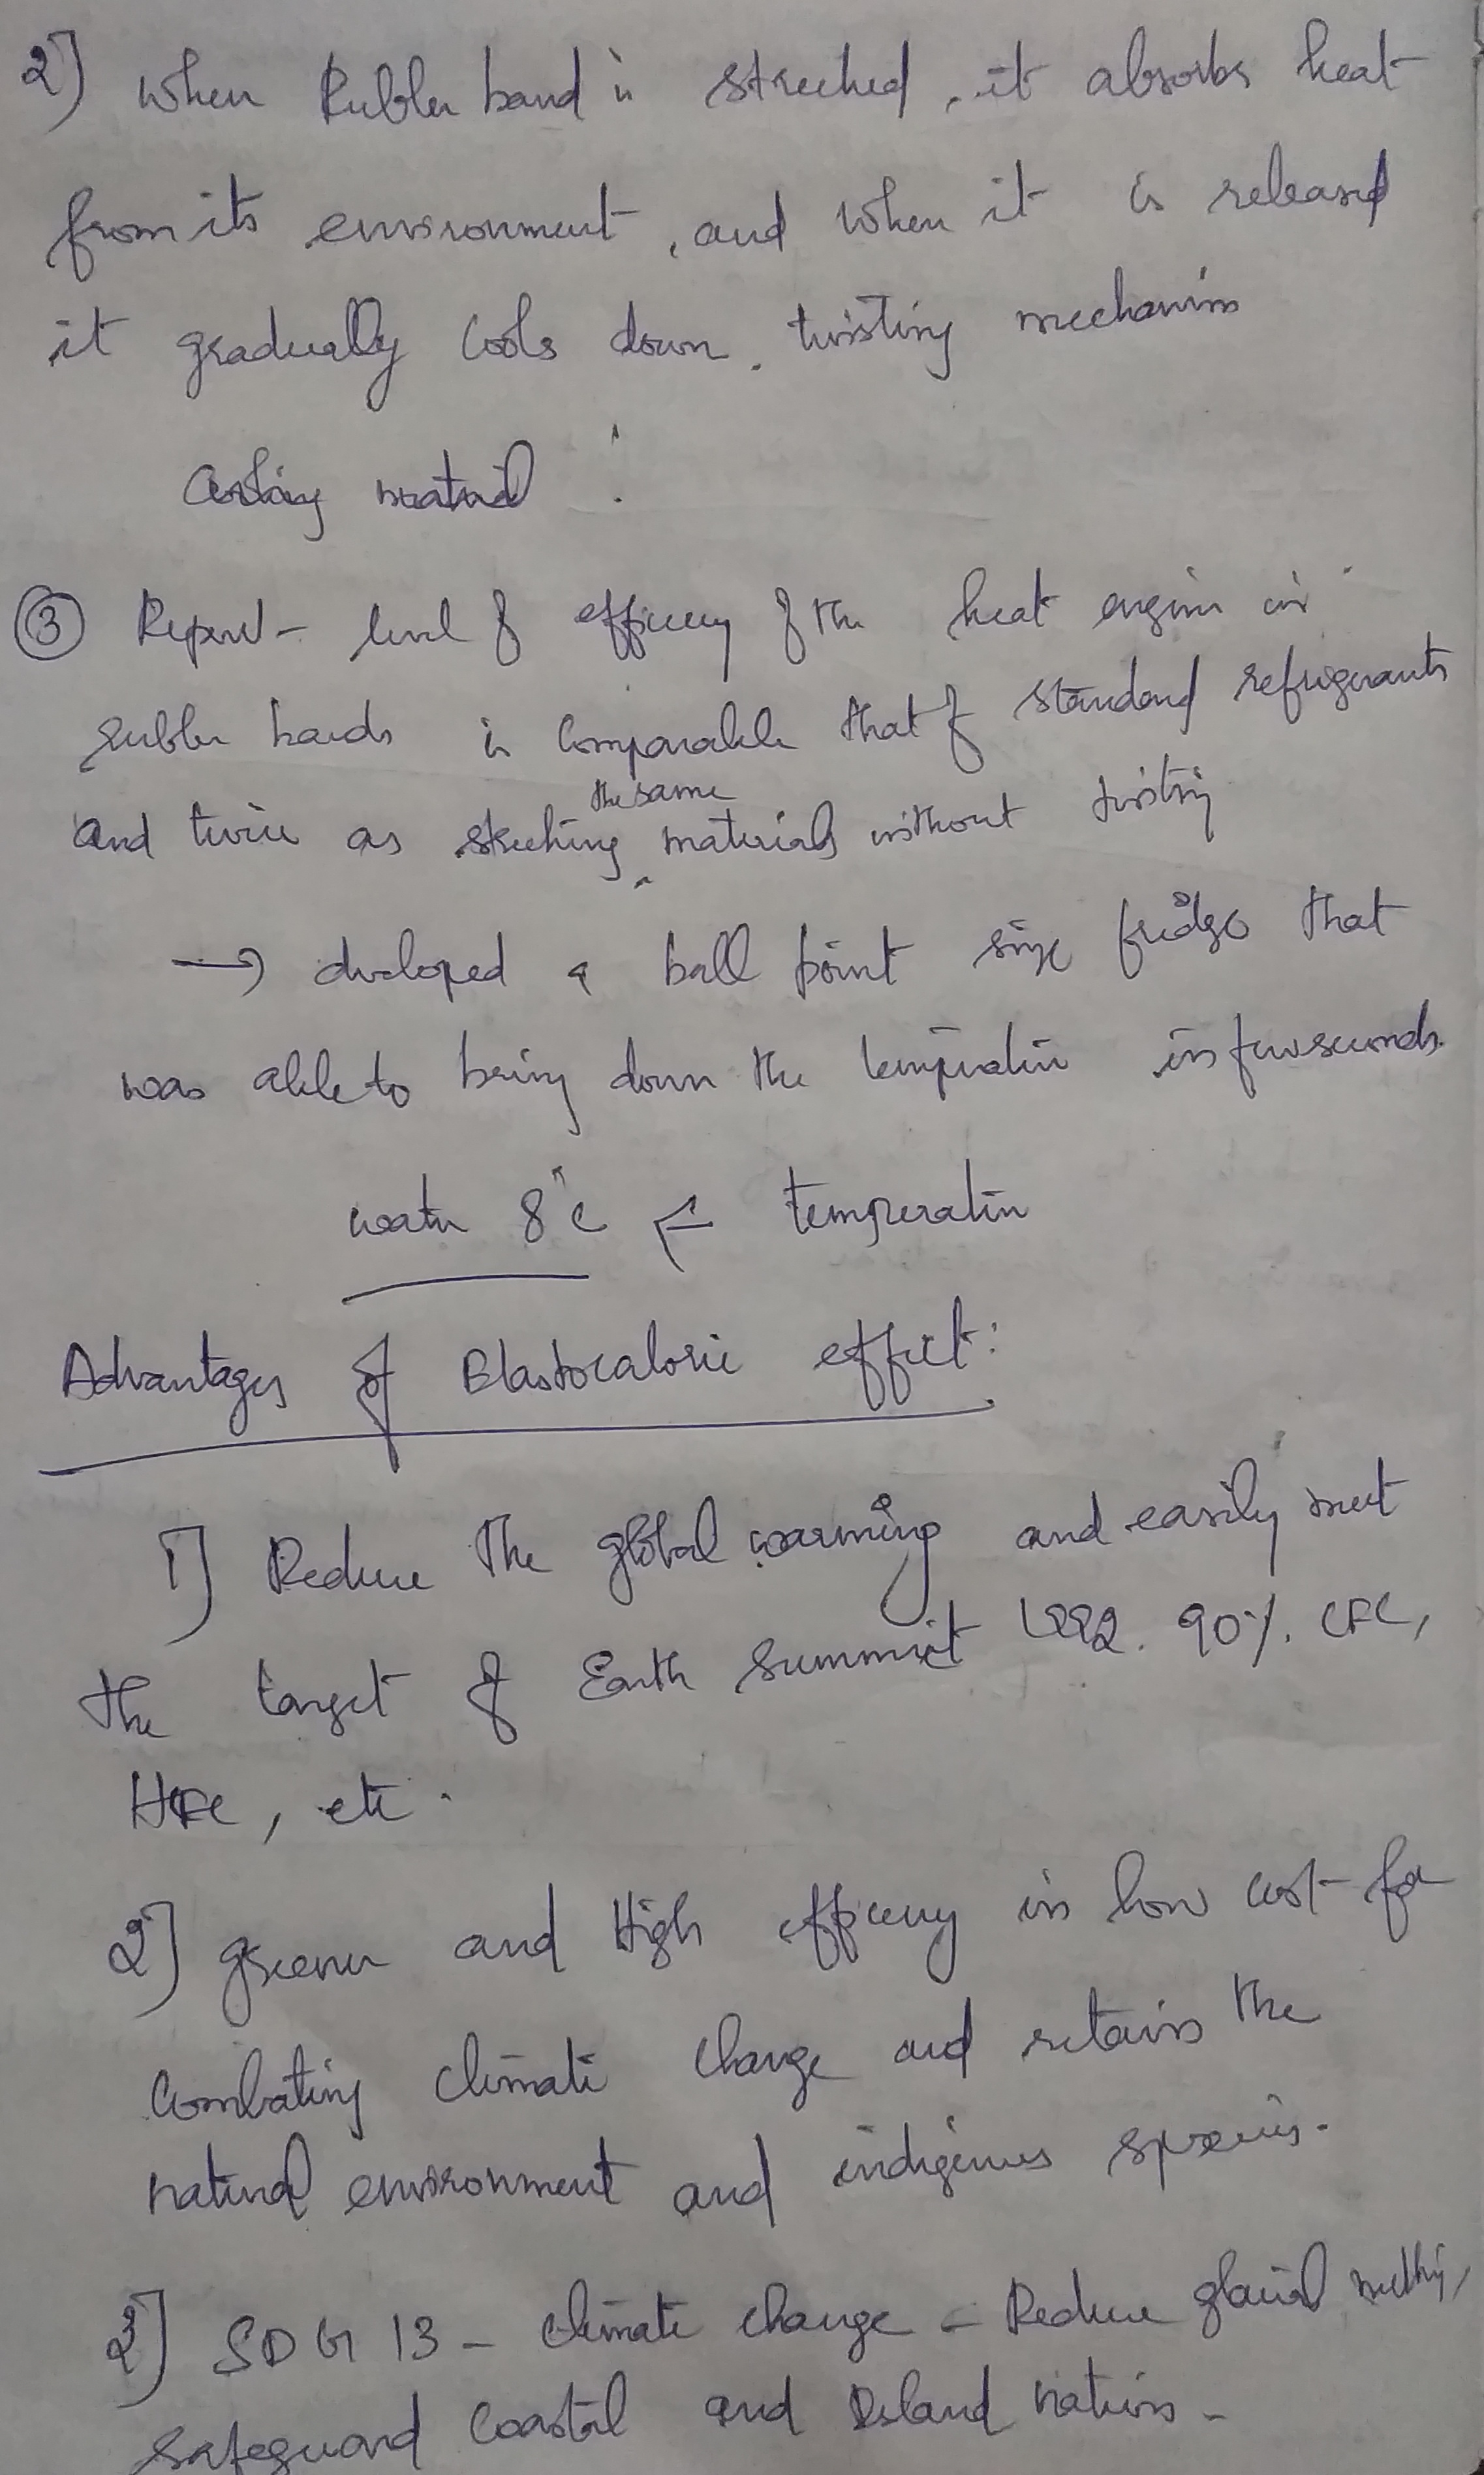 2] When Rubber band is streched, it absorbs heat
from its environment, and when it is released
it gradually cools down. twisting mechanism
Cooling material :
③ Report - level of efficiency of the heat engine in
rubber bands is comparable that of standard refrigerants
the same
and twice as streching materials without twisting
→ developed a ball point size fridge that
was able to bring down the temperature in few seconds.
water 8°C ← temperature
Advantages of Elastocaloric effect:
1] Reduce the global warming and easily meet
the target of Earth Summit 1992. 90%. CFC,
HFC, etc.
2] greener and High efficiency in low cost for
Combating climate change and retains the
natural environment and indigenous species.
3] SDG 13 - climate change - Reduce glacial melting,
safeguard coastal and Island nations -